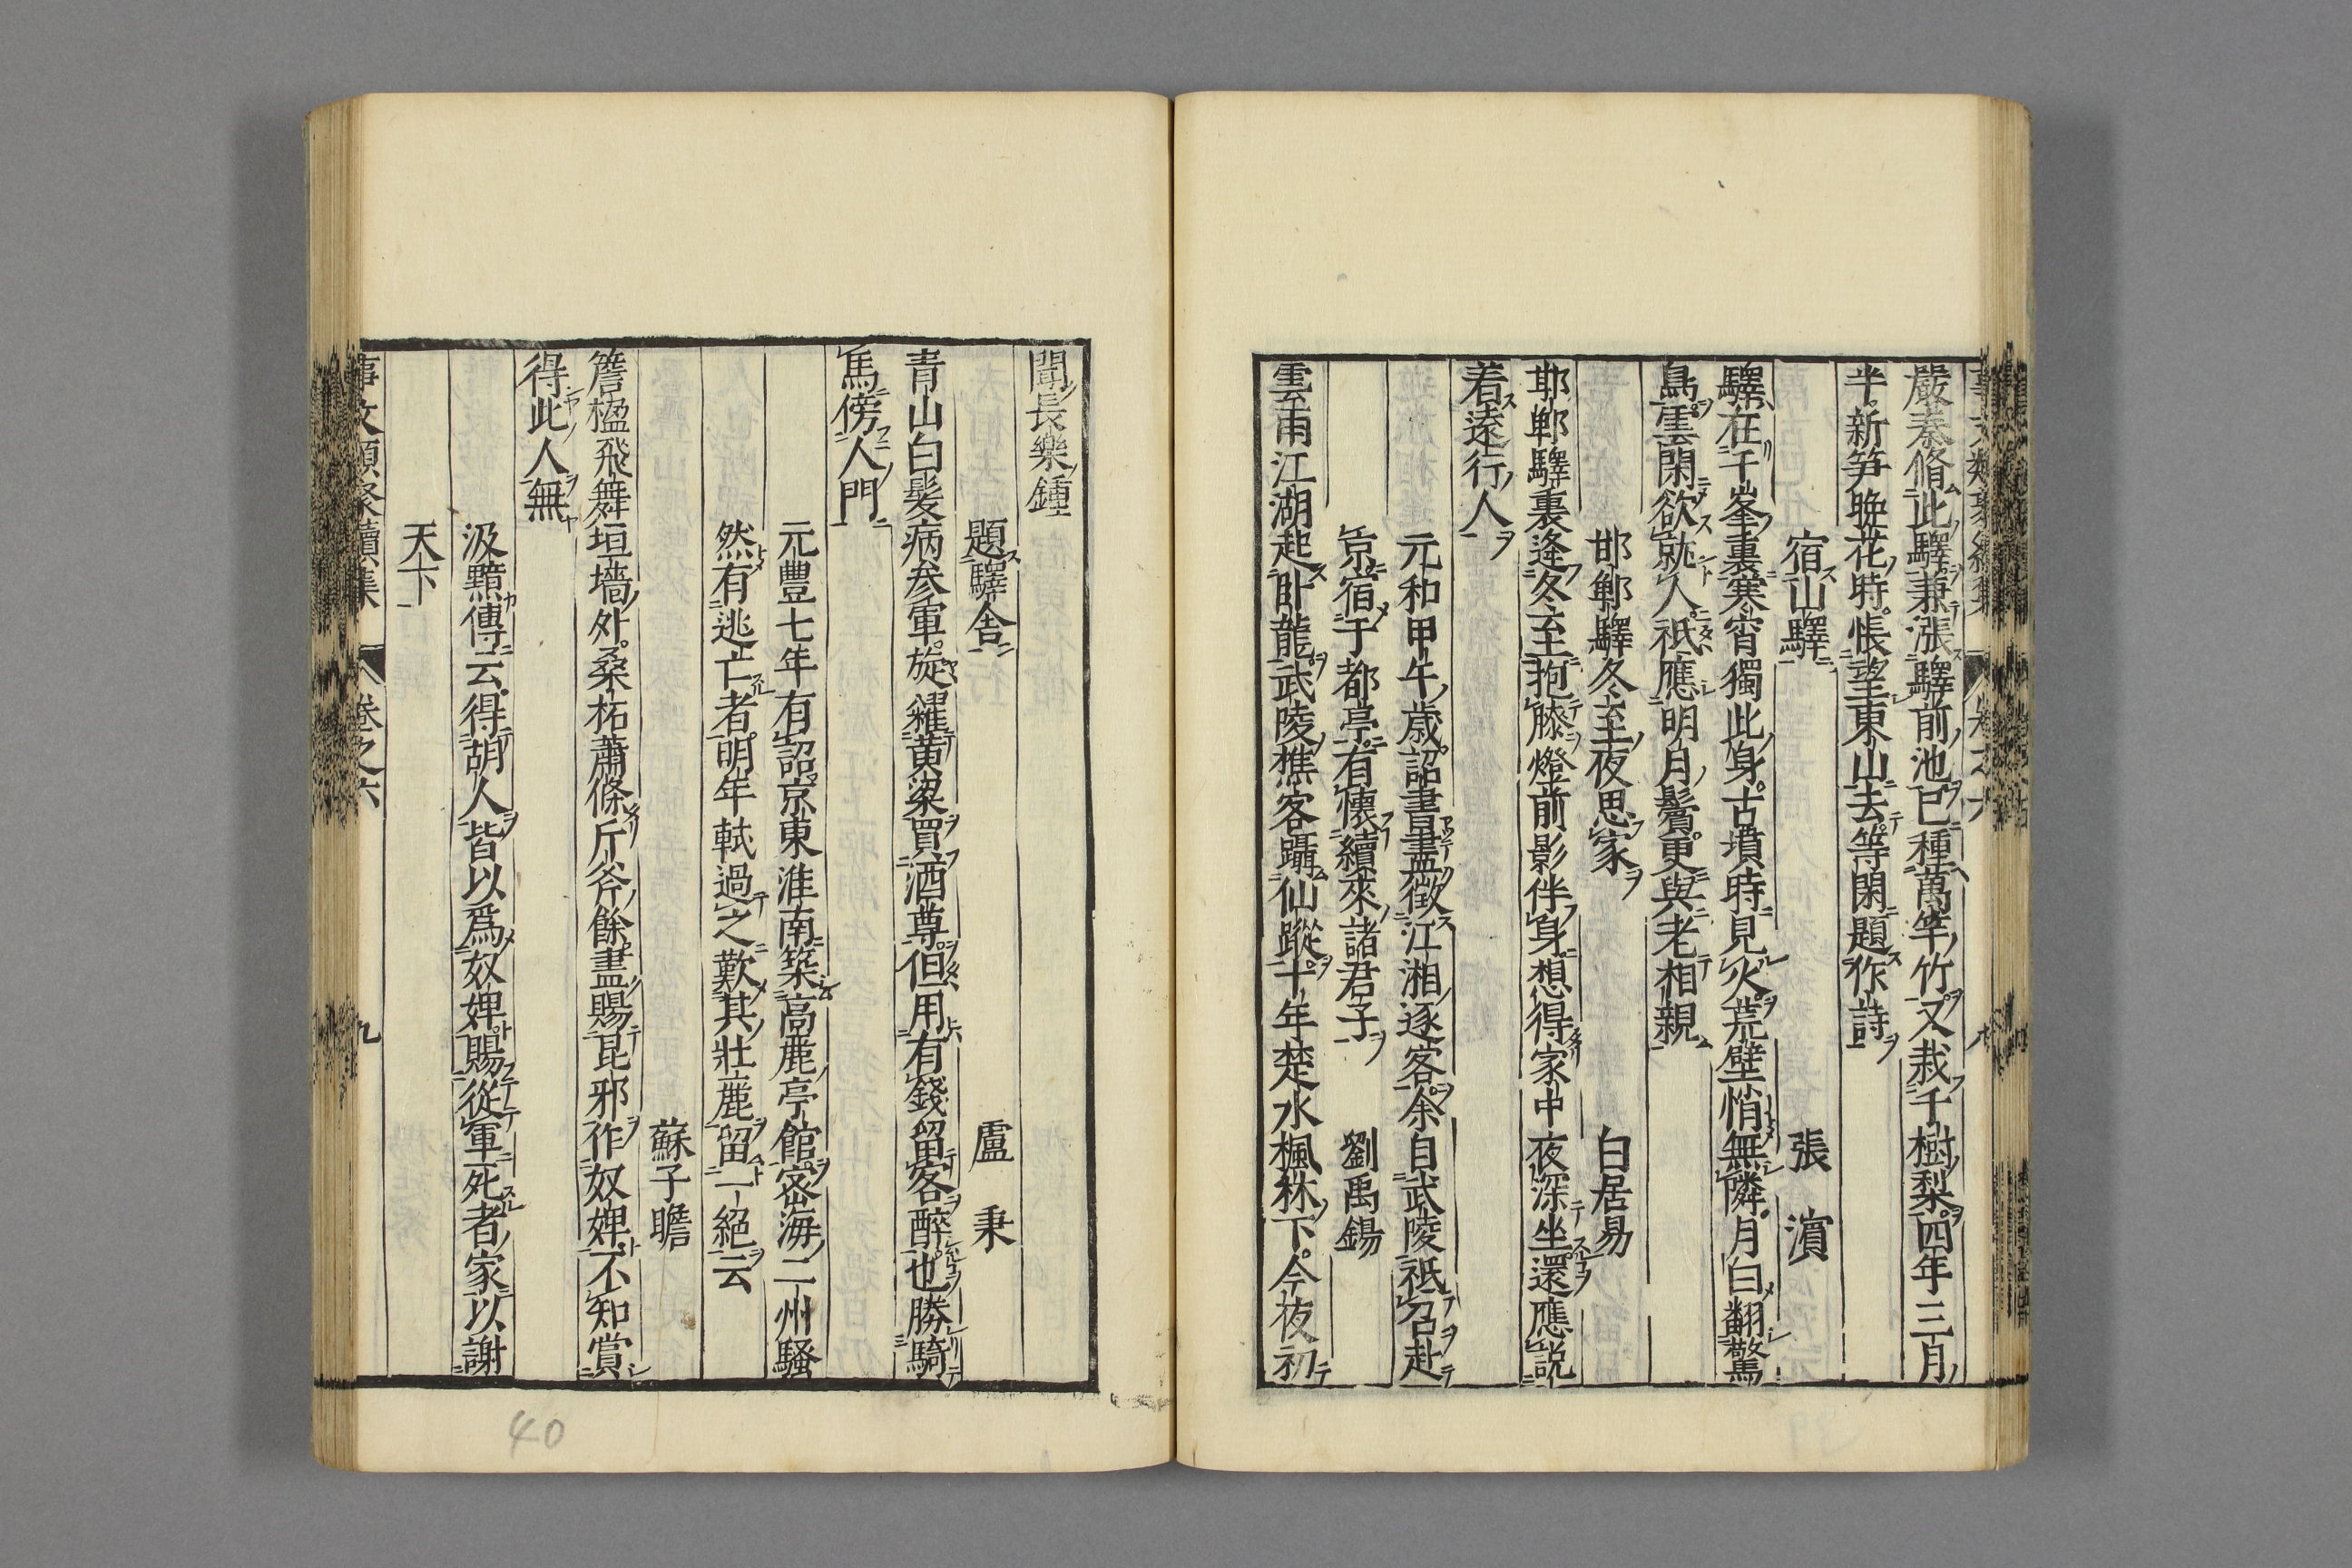 嚴秦脩此驛兼漲驛前池已種萬竿竹又栽千樹梨四年三月
半新笋晚花時悵望東山去等閑題作詩
宿山驛　張濵
驛在千峯裏寒宵獨此身古墳時見火荒壁悄無隣月白翻驚
鳥雲閑欲就人祇應明月鬢更與老相親
邯鄲驛冬至夜思家　白居易
邯鄲驛裏逢冬至抱膝燈前影伴身想得家中夜深坐還應説
着遠行人
元和甲午歳詔書盡徵江湘逐客余自武陵祗召赴
京宿于都亭有懷續來諸君子　劉禹錫
雲雨江湖起卧龍武陵樵客躡仙蹤十年楚水楓林下今夜初
聞長樂鍾
題驛舍　盧秉
青山白髮病參軍旋糴黄粱買酒尊但用有錢留客醉也勝騎
馬傍人門
元豐七年有詔京東淮南築高麗亭館密海二州騷
然有逃亡者明年軾過之歎其壯麗留一絕云
蘇子瞻
簷楹飛舞垣墻外桑柘蕭條斤斧餘盡賜昆邪作奴婢不知賞
得此人無
汲黯傳云得胡人皆以爲奴婢賜從軍死者家以謝
天下
事文類聚續集　卷之六　九
40